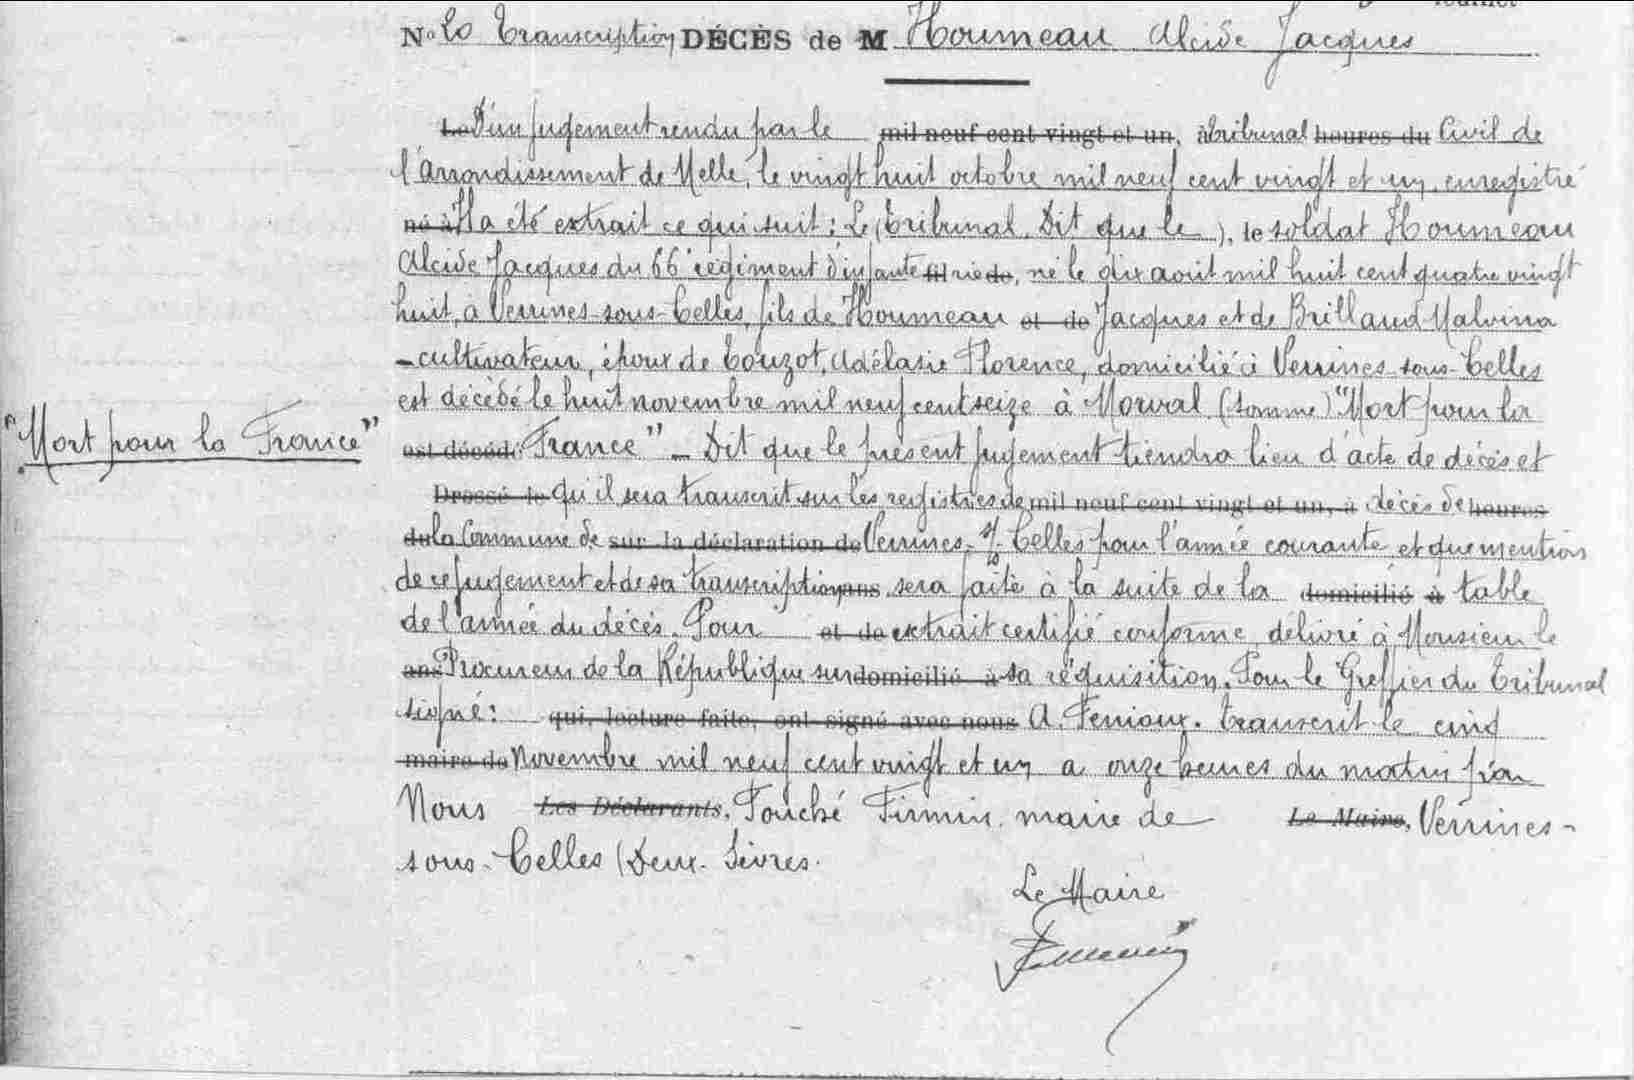 N° 20 Transcription DÉCÈS de M Houmeau Alcide Jacques
Le D'un jugement rendu par le mil neuf cent vingt et un, à tribunal heures du Civil de
l'arrondissement de Melle, le vingt huit octobre mil neuf cent vingt et un, enregistré
né à Il a été extrait ce qui suit : Le Tribunal, Dit que le ), le soldat Houmeau
Alcide Jacques du 66e régiment d'infante fil rie de, né le dix août mil huit cent quatre vingt
huit, à Verrines-sous-Celles, fils de Houmeau et de Jacques et de Brillaud Malvina
- cultivateur, époux de Touzot, Adélasie Florence, domicilié à Verrines-sous-Celles
est décédé le huit novembre mil neuf cent seize à Morval (Somme) "Mort pour la
"Mort pour la France"
est décédé France" - Dit que le présent jugement tiendra lieu d'acte de décès et
Dressé le qu'il sera transcrit sur les registres de mil neuf cent vingt et un, à décès de heures
du la Commune de sur la déclaration de Verrines-s/-Celles pour l'année courante et que mention
de ce jugement et de sa transcription ans sera faite à la suite de la domicilié à table
de l'année du décès. Pour et de extrait certifié conforme délivré à Monsieur le
ans Procureur de la République sur domicilié à sa réquisition. Pour le Greffier du Tribunal
signé : qui, lecture faite, ont signé avec nous A. Fenioux. transcrit le cinq
maire de Novembre mil neuf cent vingt et un a onze heures du matin par
Nous Les Déclarants, Fouché Firmin, maire de Le Maire, Verrines-
sous-Celles (Deux-Sèvres.
Le Maire